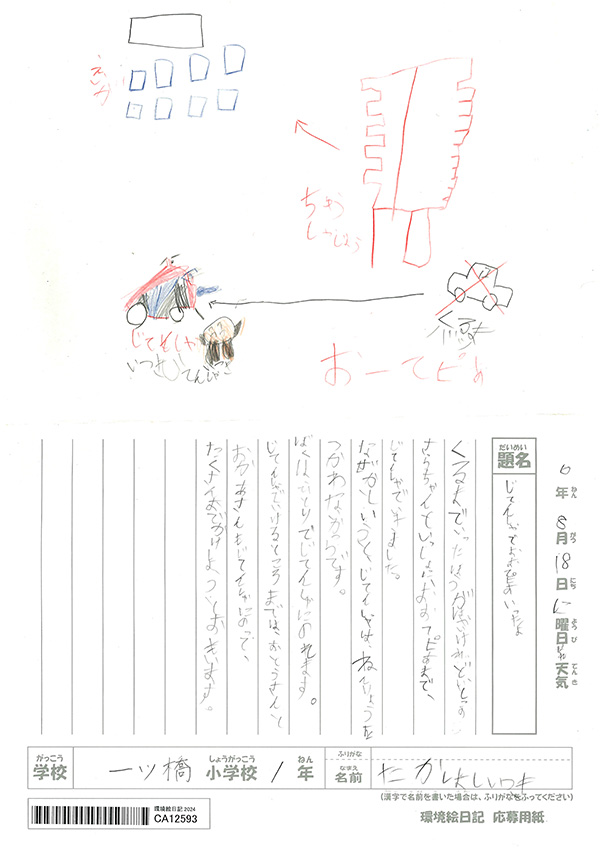 えいが
ちゅう
しゃじょう
じてんしゃ
いつき
じてんしゃ
くるま
おーてぴあ
だいめい
題名
じてんしゃでおおてぴあいったよ
6年 8月 18日 に曜日 はれ 天気
ねん がつ にち ようび てんき
くるまでいったほうがはやけれどいもうとの
さらちゃんといっしょにおおてピあまで、
じてんしゃでいきました。
なぜかというと、じてんしゃは、ねんりょうを
つかわないからです。
ぼくは、ひとりでじてんしゃにのれます。
じてんしゃでいけるところまでは、おとうさんと
おかあさんもじてんしゃにのって、
たくさんおでかけしようとおもいます。
がっこう
学校
一ツ橋
しょうがっこう
小学校
1
ねん
年
ふりがな
なまえ
名前
たかはしいつき
(漢字で名前を書いた場合は、ふりがなをふってください)
環境絵日記 2024
CA12593
環境絵日記 応募用紙